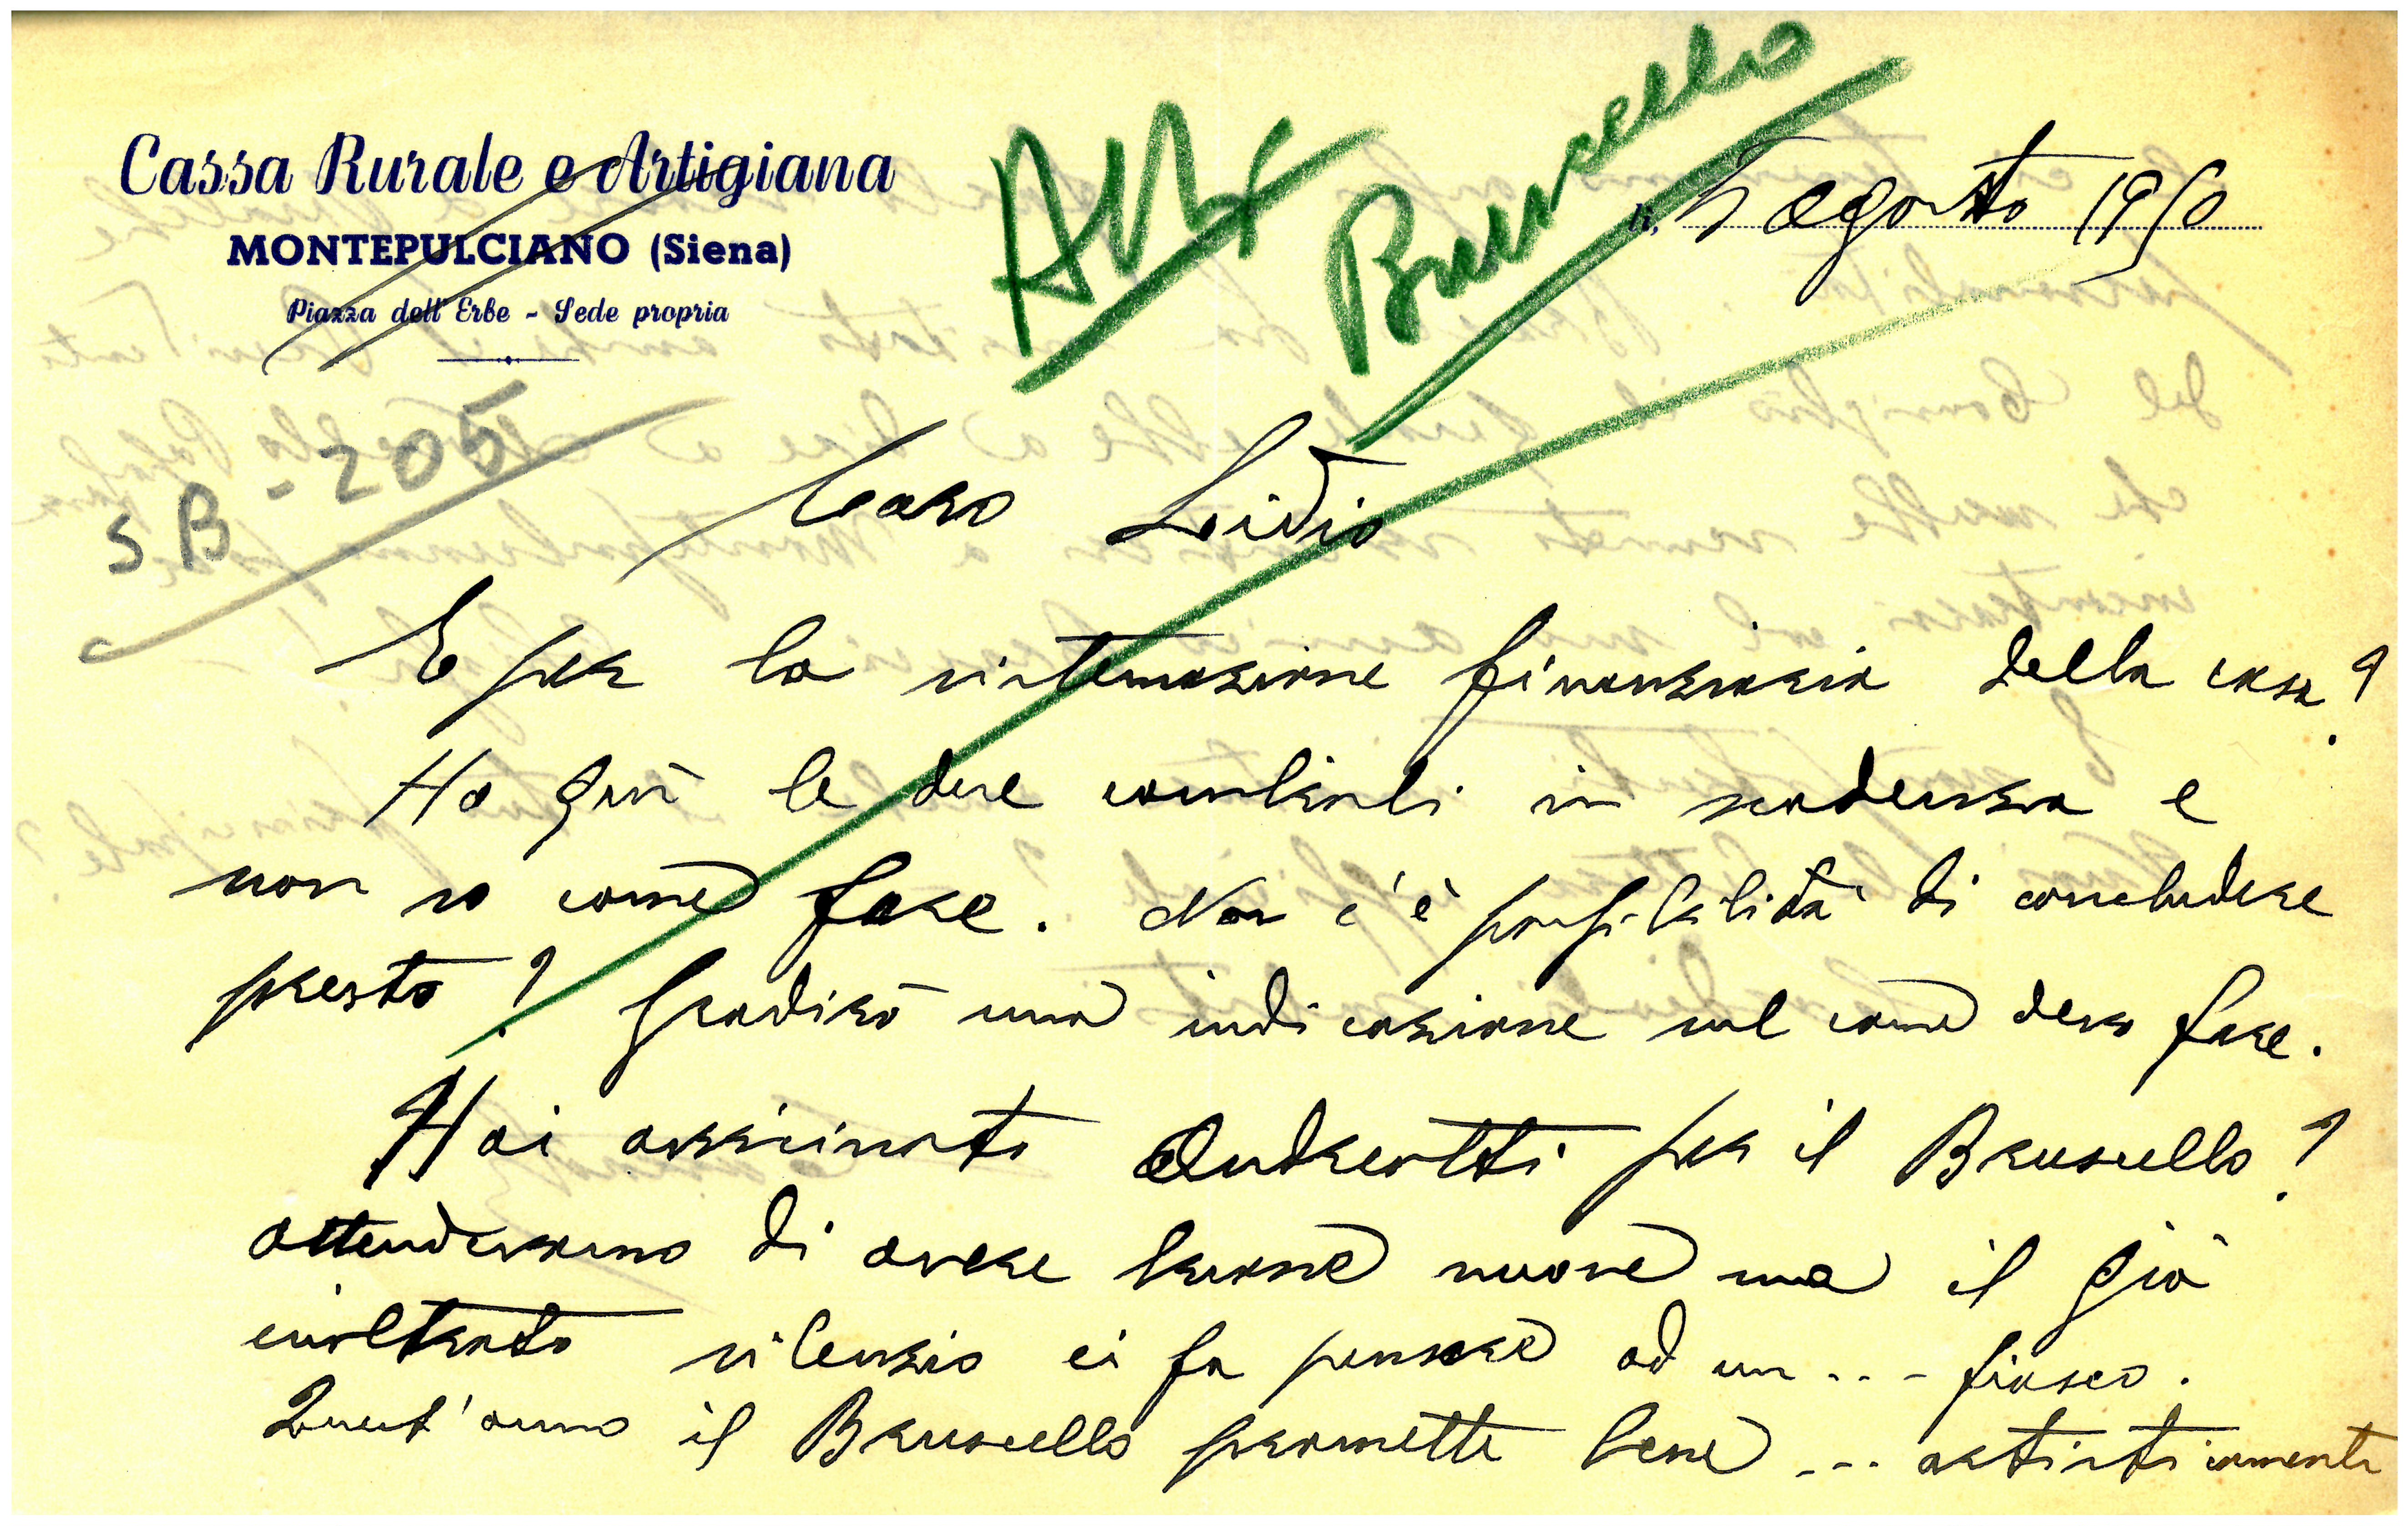 Cassa Rurale e Artigiana
MONTEPULCIANO (Siena)
Piazza dell'Erbe - Sede propria
Bruscello
li, 5 agosto 1950
SB - 205
Caro Lidio
E per la sistemazione finanziaria della casa?
Ho qui le due cambiali in scadenza e
non so come fare. Non c'è possibilità di concludere
presto? Gradirò una indicazione sul come devo fare.
Hai avvicinato Andreotti per il Bruscello?
attendevamo di avere buone nuove ma il già
inoltrato silenzio ci fa pensare ad un ... fiasco.
Quest'anno il Bruscello promette bene ... artisticamente